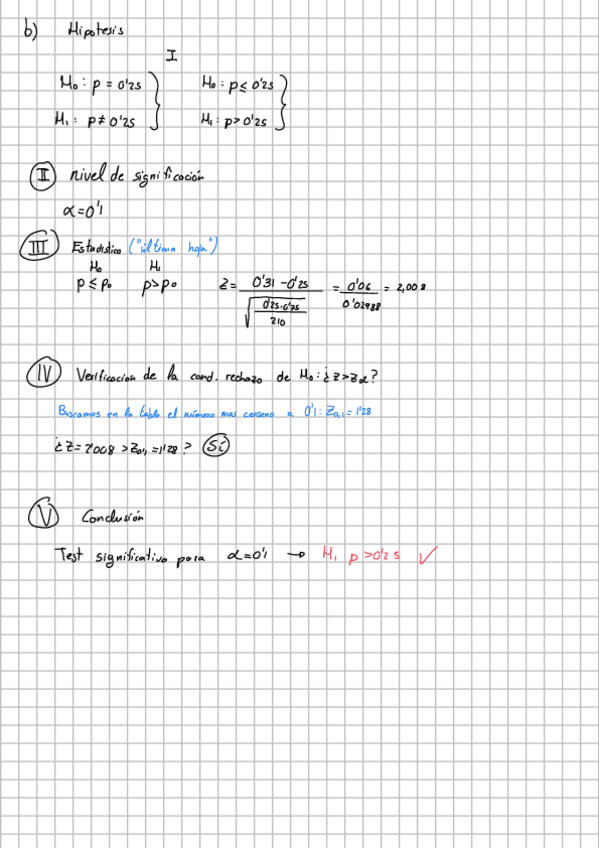 b) Hipotesis
I
H₀: p = 0'25 } H₀: p ≤ 0'25 }
H₁: p ≠ 0'25 } H₁: p > 0'25 }
II nivel de significación
α = 0'1
III Estadístico ("última hoja")
H₀ H₁
p ≤ p₀ p > p₀ Z = (0'31 - 0'25) / √(0'25·0'75 / 210) = 0'06 / 0'02988 = 2,008
IV Verificacion de la cond. rechazo de H₀: ¿Z > Zα?
Buscamos en la tabla el número mas cercano a 0'1: Z₀,₁ = 1'28
¿Z = 2'008 > Z₀,₁ = 1'28? Sí
V Conclusión
Test significativo para α = 0'1 → H₁ p > 0'25 ✓